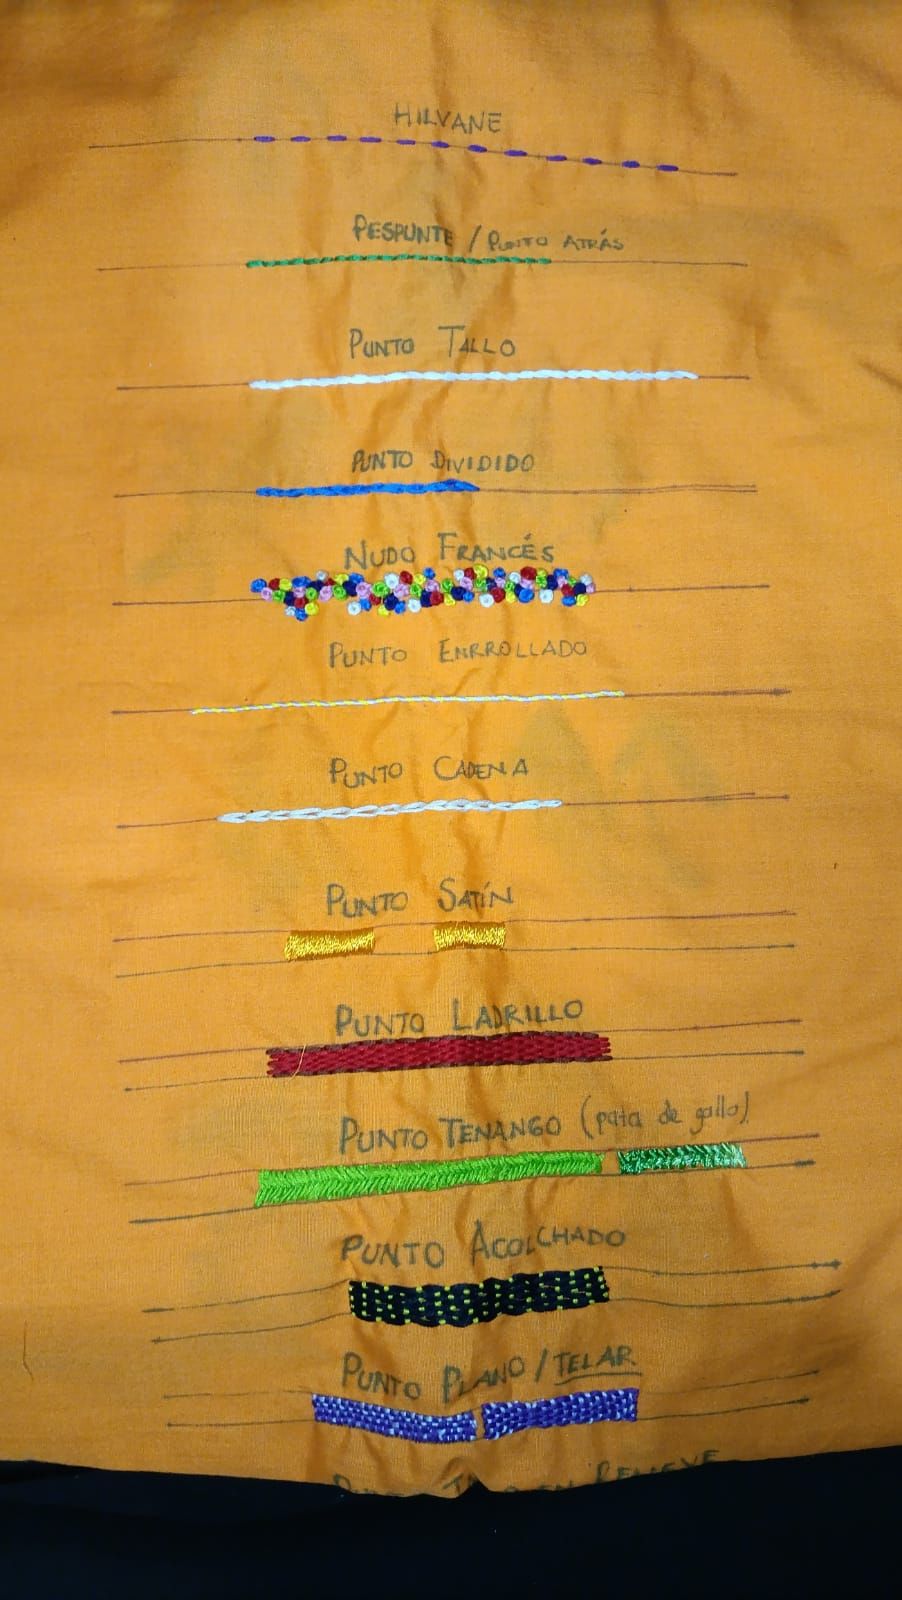 HILVANE
PESPUNTE / PUNTO ATRÁS
PUNTO TALLO
PUNTO DIVIDIDO
NUDO FRANCÉS
PUNTO ENRROLLADO
PUNTO CADENA
PUNTO SATÍN
PUNTO LADRILLO
PUNTO TENANGO (pata de gallo)
PUNTO ACOLCHADO
PUNTO PLANO / TELAR
EN RELIEVE